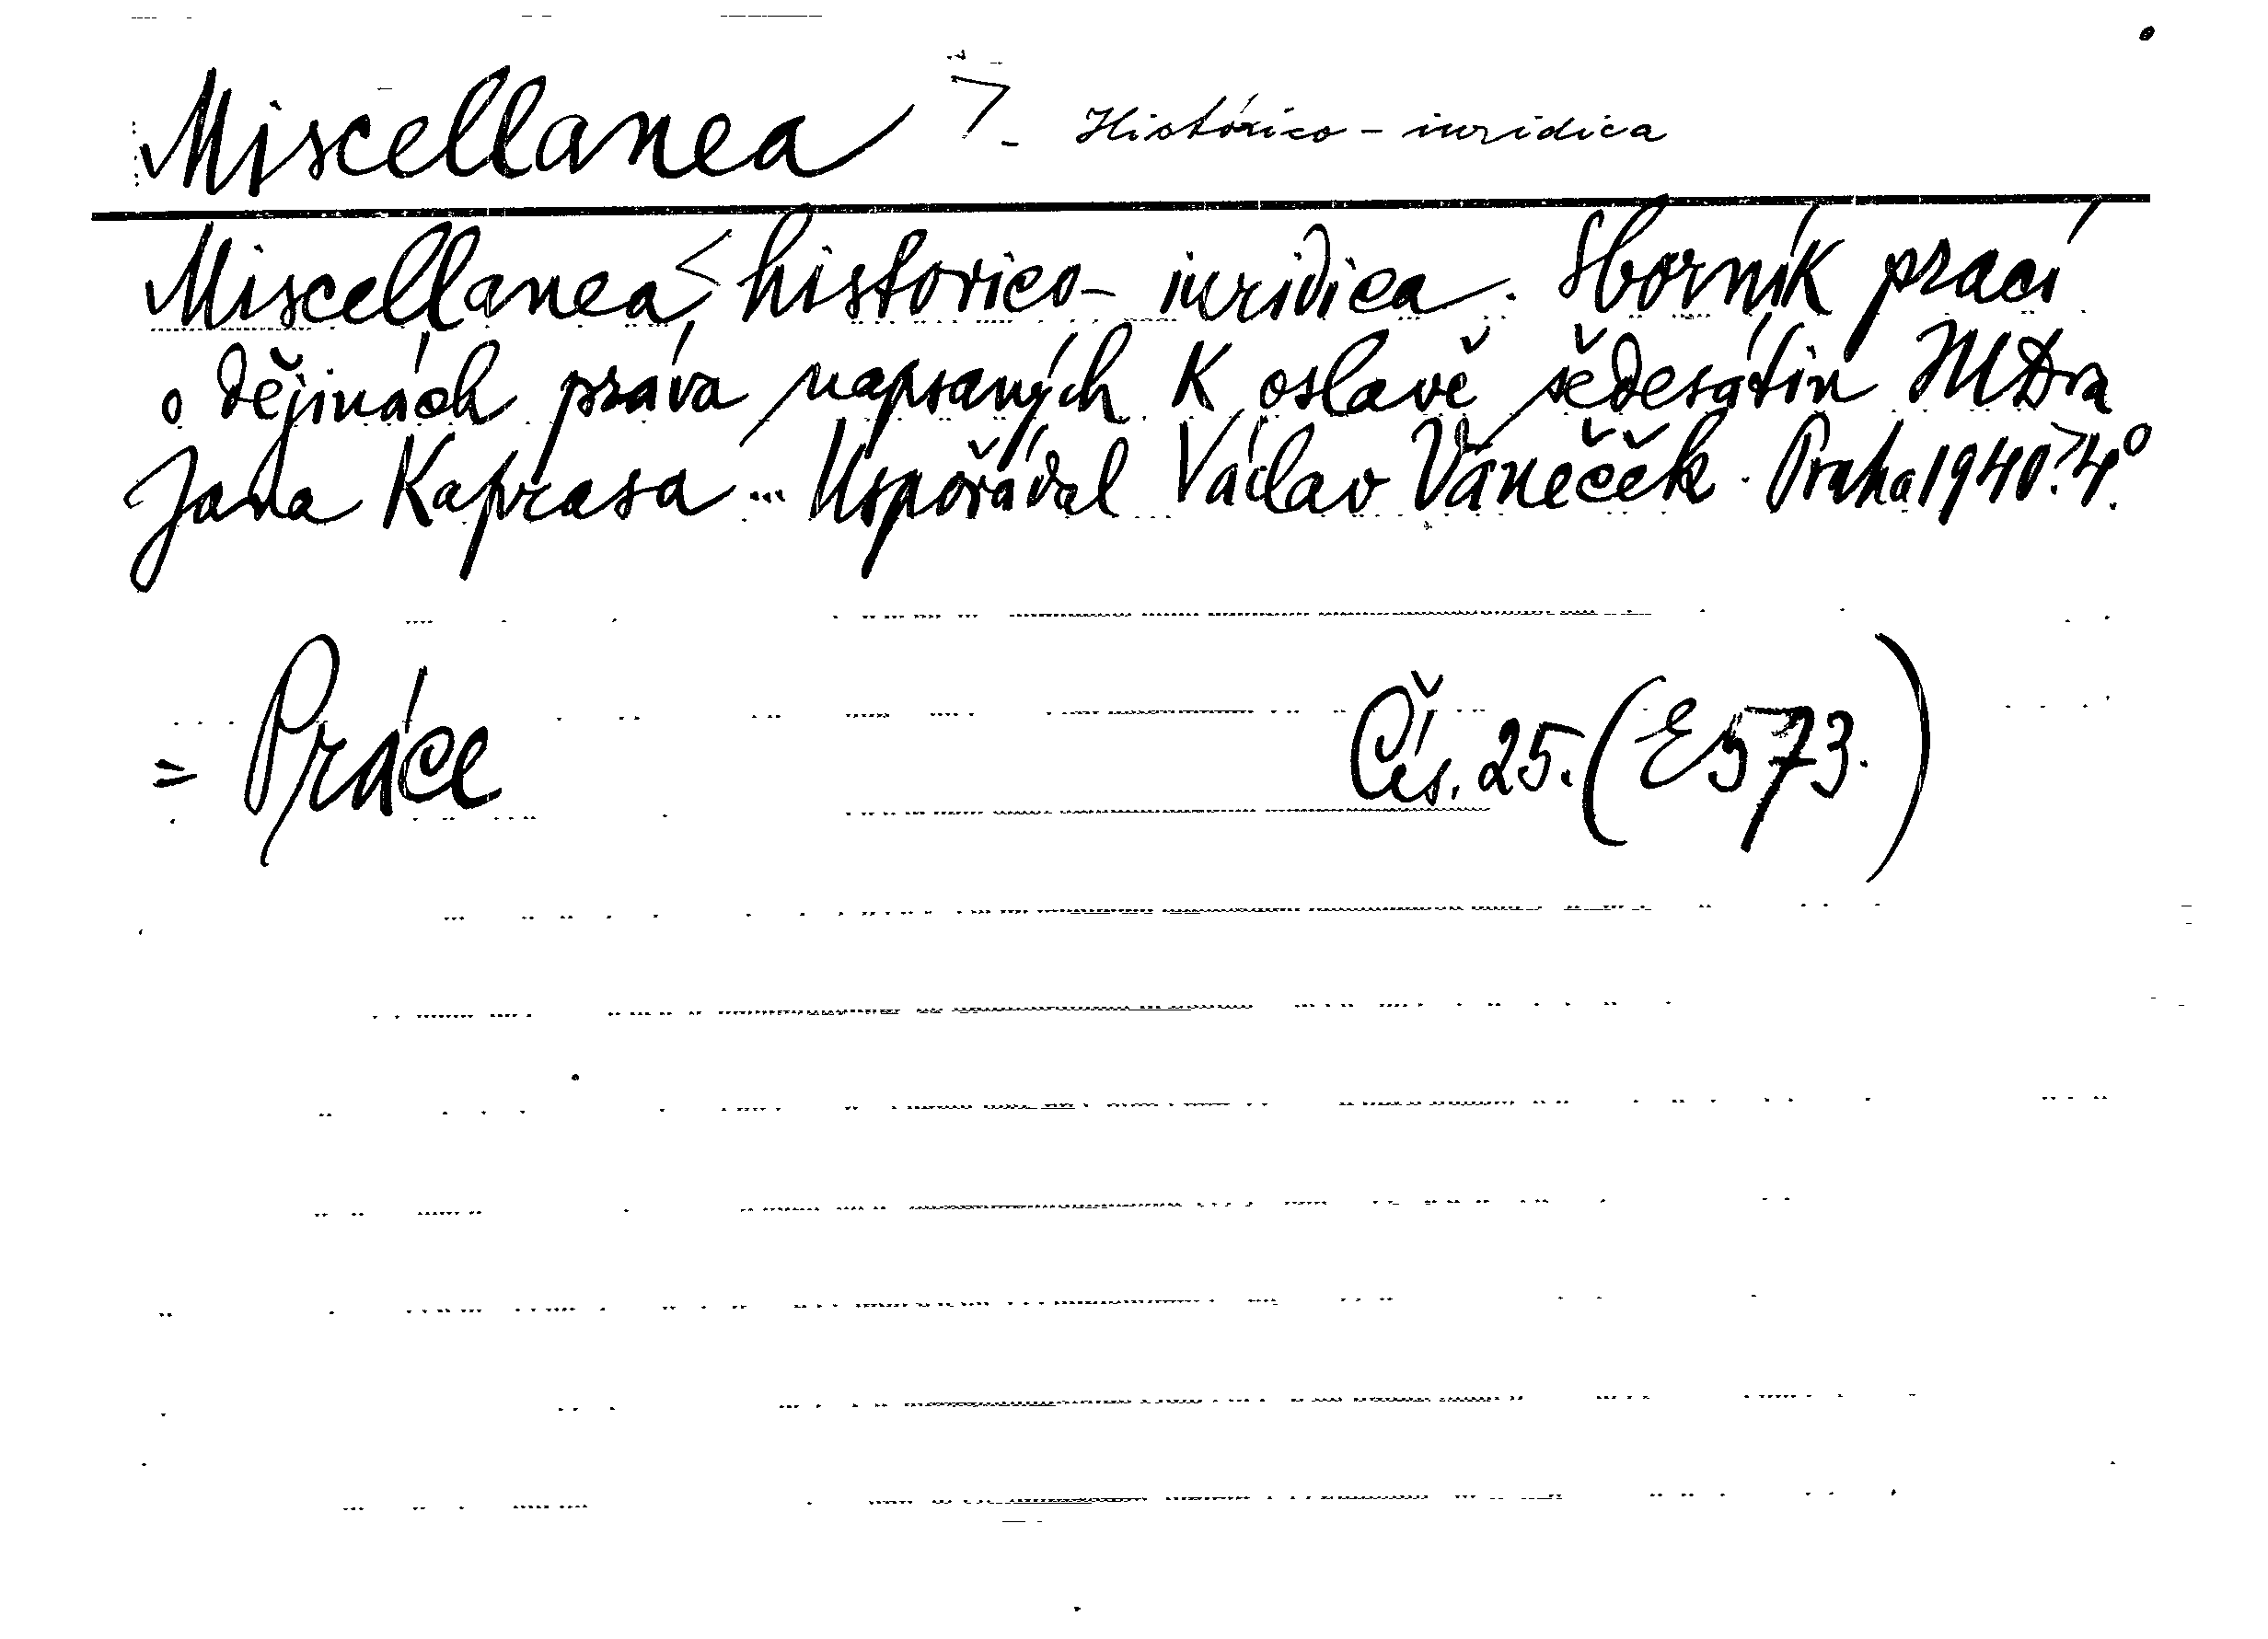 Miscellanea > - Historico - iuridica
Miscellanea < historico - iuridica. Sborník prací
o dějinách práva napsaných k oslavě šedesátin
Jana Kaprasa ... Uspořádal Václav Vaněček. Praha 1940. 4°.
= Práce Čís. 25. (E 573.)